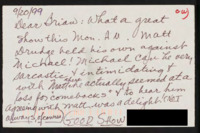 9/20/99
Dear Brian: What a great
Show this Mon. A.M. Matt
Drudge held his own against
Michael! Michael can be very
sarcastic & intimidating &
with Matt he actually seemed at a
loss for "comebacks" & to hear him
agreeing with Matt was a delight! (NOT
always, of course) GOOD SHOW